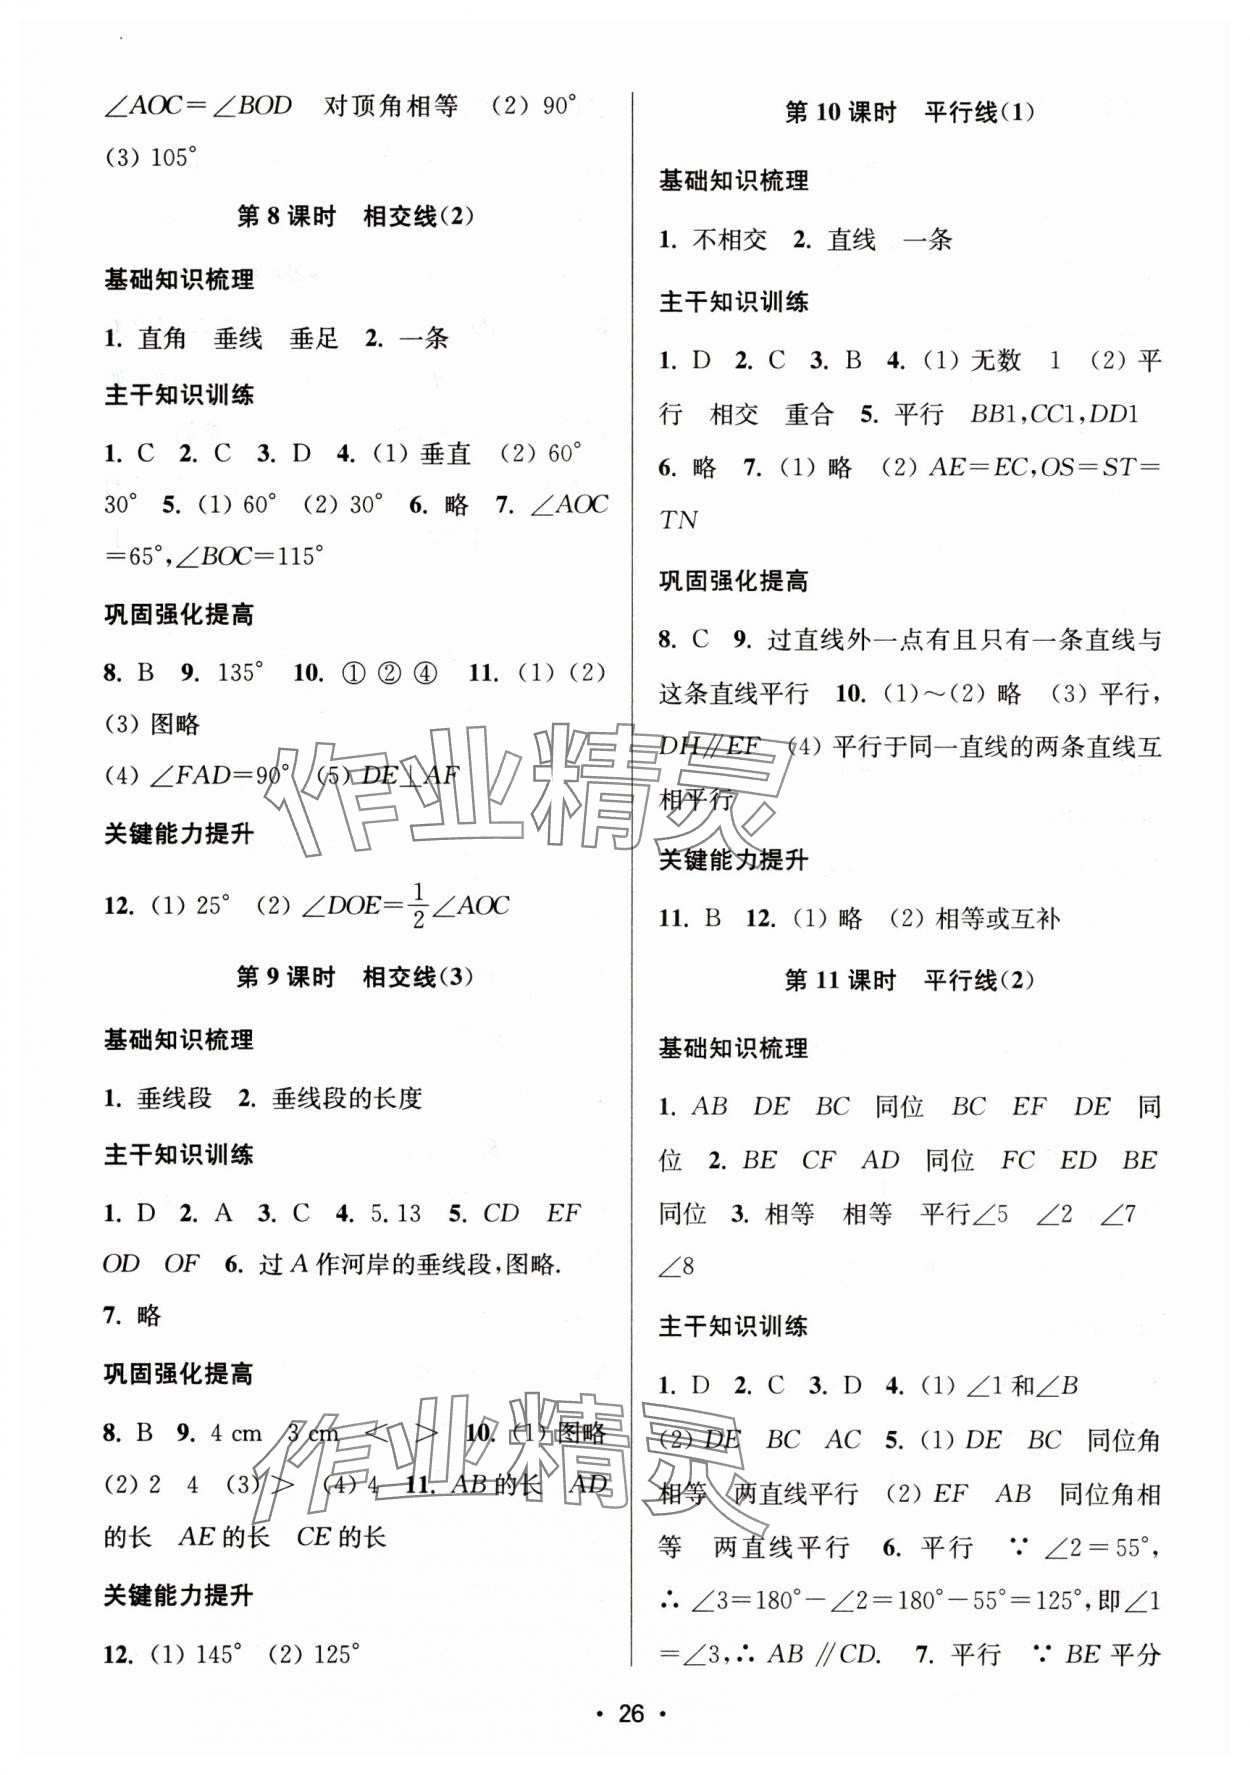 ∠AOC=∠BOD　对顶角相等　(2) 90°
(3) 105°
第 8 课时　相交线(2)
基础知识梳理
1. 直角　垂线　垂足　2. 一条
主干知识训练
1. C　2. C　3. D　4. (1) 垂直　(2) 60°
30°　5. (1) 60°　(2) 30°　6. 略　7. ∠AOC
=65°,∠BOC=115°
巩固强化提高
8. B　9. 135°　10. ① ② ④　11. (1) (2)
(3) 图略
(4) ∠FAD=90°　(5) DE⊥AF
关键能力提升
12. (1) 25°　(2) ∠DOE=1/2∠AOC
第 9 课时　相交线(3)
基础知识梳理
1. 垂线段　2. 垂线段的长度
主干知识训练
1. D　2. A　3. C　4. 5.13　5. CD　EF
OD　OF　6. 过 A 作河岸的垂线段,图略.
7. 略
巩固强化提高
8. B　9. 4 cm　3 cm　<　>　10. (1) 图略
(2) 2　4　(3) >　(4) 4　11. AB 的长　AD
的长　AE 的长　CE 的长
关键能力提升
12. (1) 145°　(2) 125°
第 10 课时　平行线(1)
基础知识梳理
1. 不相交　2. 直线　一条
主干知识训练
1. D　2. C　3. B　4. (1) 无数　1　(2) 平
行　相交　重合　5. 平行　BB1,CC1,DD1
6. 略　7. (1) 略　(2) AE=EC,OS=ST=
TN
巩固强化提高
8. C　9. 过直线外一点有且只有一条直线与
这条直线平行　10. (1)～(2) 略　(3) 平行,
DH∥EF　(4) 平行于同一直线的两条直线互
相平行
关键能力提升
11. B　12. (1) 略　(2) 相等或互补
第 11 课时　平行线(2)
基础知识梳理
1. AB　DE　BC　同位　BC　EF　DE　同
位　2. BE　CF　AD　同位　FC　ED　BE
同位　3. 相等　相等　平行∠5　∠2　∠7
∠8
主干知识训练
1. D　2. C　3. D　4. (1) ∠1 和∠B
(2) DE　BC　AC　5. (1) DE　BC　同位角
相等　两直线平行　(2) EF　AB　同位角相
等　两直线平行　6. 平行　∵ ∠2=55°,
∴ ∠3=180°−∠2=180°−55°=125°,即∠1
=∠3,∴ AB∥CD.　7. 平行　∵ BE 平分
• 26 •
作业精灵
作业精灵